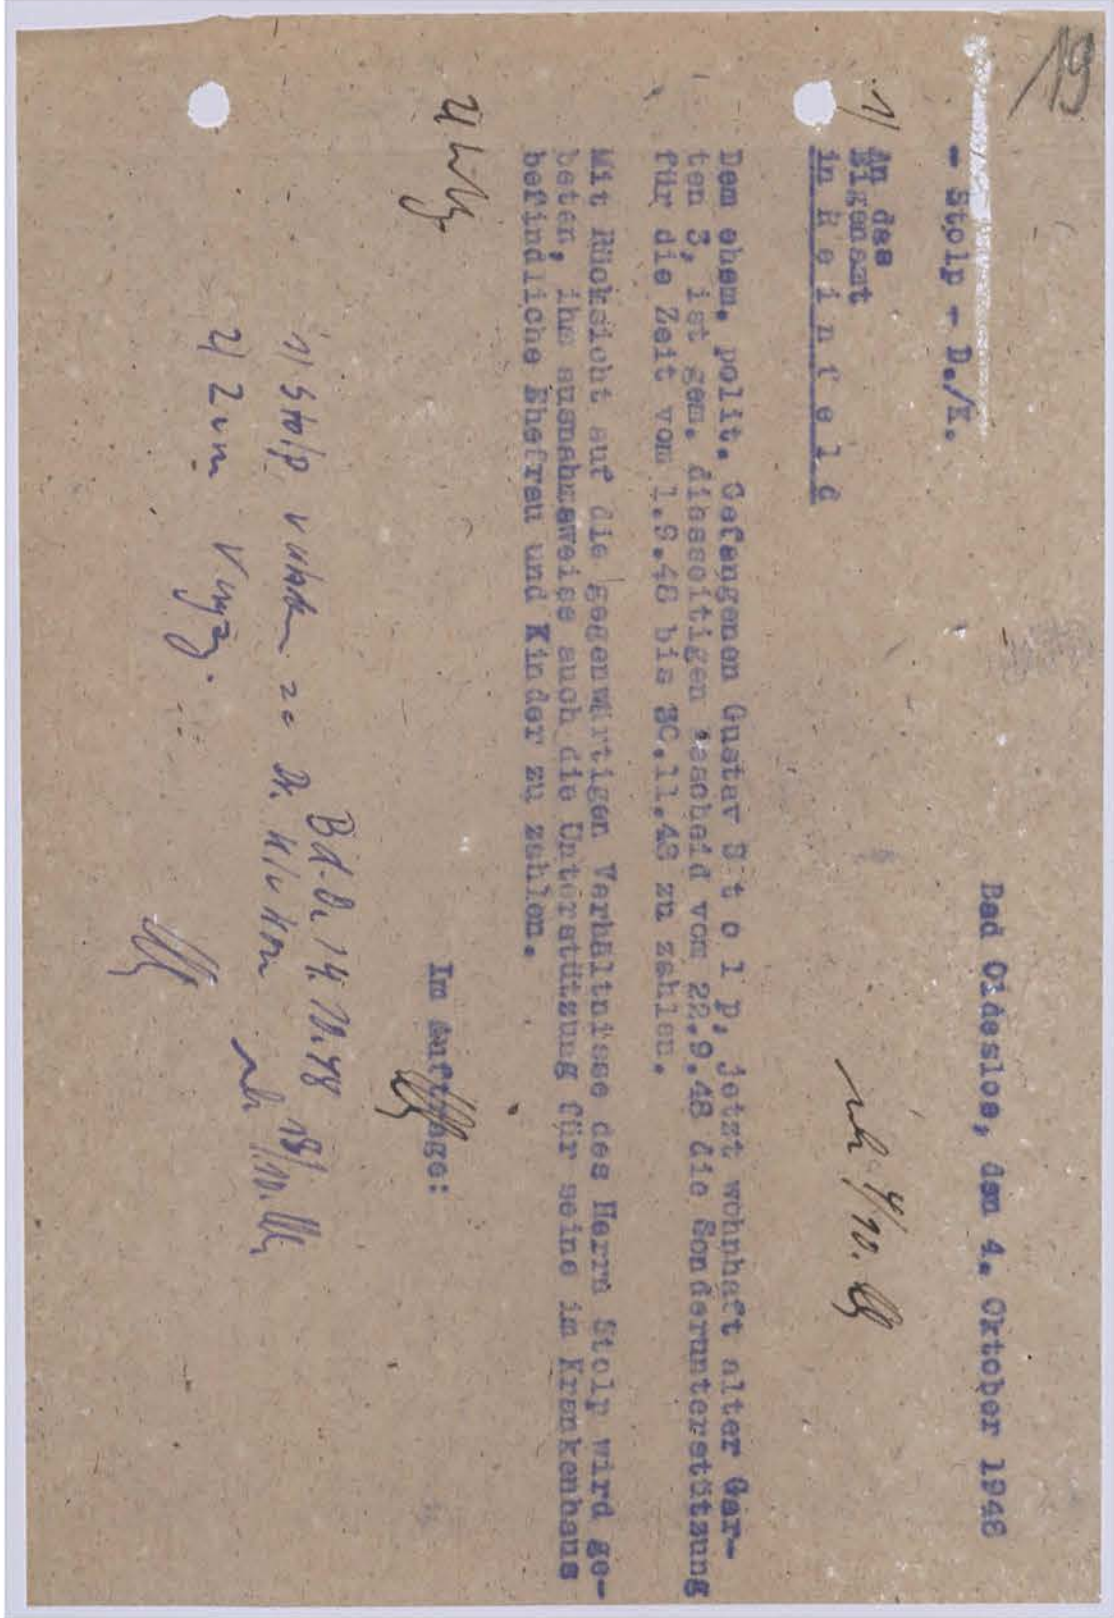 19
Bad Oldesloe, den 4. Oktober 1948
- Stolp - D./K.
1/ An das
Eigenamt
in R e i n f e l d
4/10.
Dem ehem. polit. Gefangenen Gustav S t o l p, jetzt wohnhaft alter Gar-
ten 3, ist gem. diesseitigen Bescheid vom 22.9.48 die Sonderunterstützung
für die Zeit vom 1.9.48 bis 30.11.48 zu zahlen.
Mit Rücksicht auf die gegenwärtigen Verhältnisse des Herrn Stolp wird ge-
beten, ihm ausnahmsweise auch die Unterstützung für seine im Krankenhaus
befindliche Ehefrau und Kinder zu zahlen.
Im Auftrage:
2/
Bd. O. 14. 10. 48
1/ Stolp
18/10.
2/ Zum